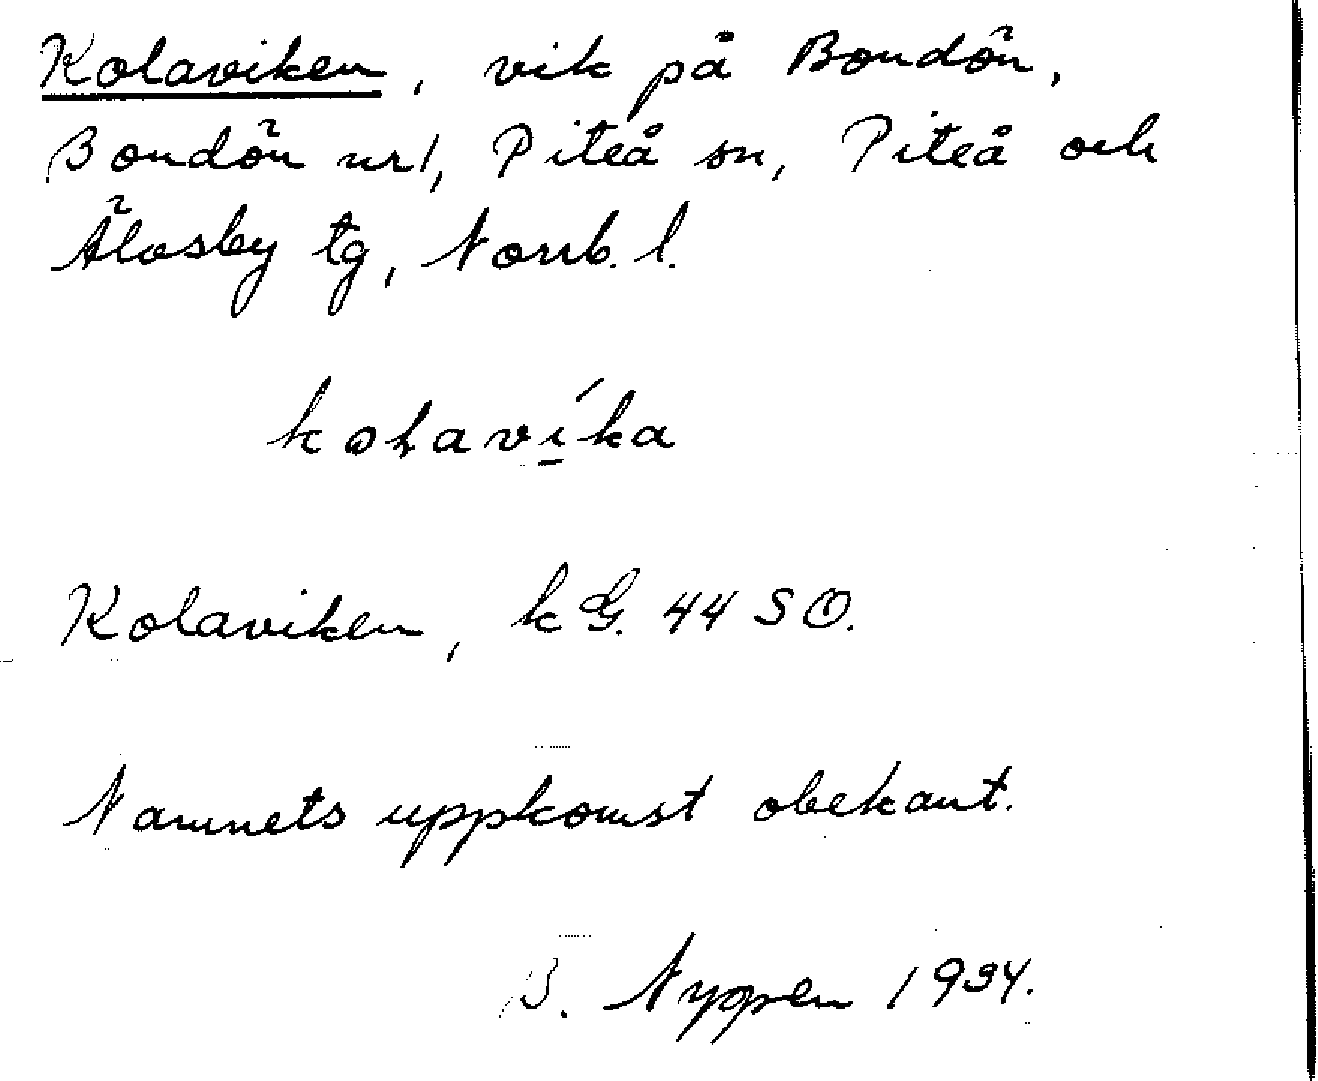 Kolaviken, vik på Bondön,
Bondön nr1, Piteå sn, Piteå och
Älvsby tg, Norrb. l.
kolavíka
Kolaviken, kG. 44 SO.
Namnets uppkomst obekant.
B. Nyppen 1934.